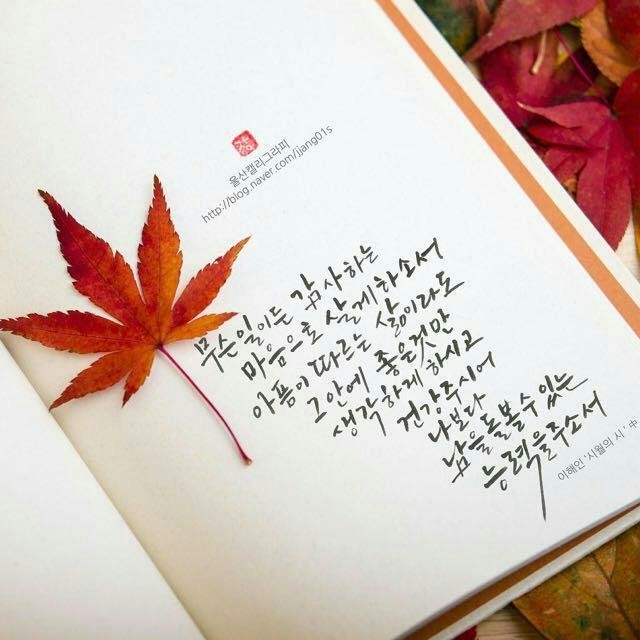 울산캘리그라피
http://blog.naver.com/jjang01s
무슨일이든 감사하는
마음으로 살게하소서
아픔이 따르는 삶이라도
그안에 좋은것만
생각하게 하시고
건강주시어
나보다
남을돌볼수있는
능력을주소서
이해인 '시월의 시' 中